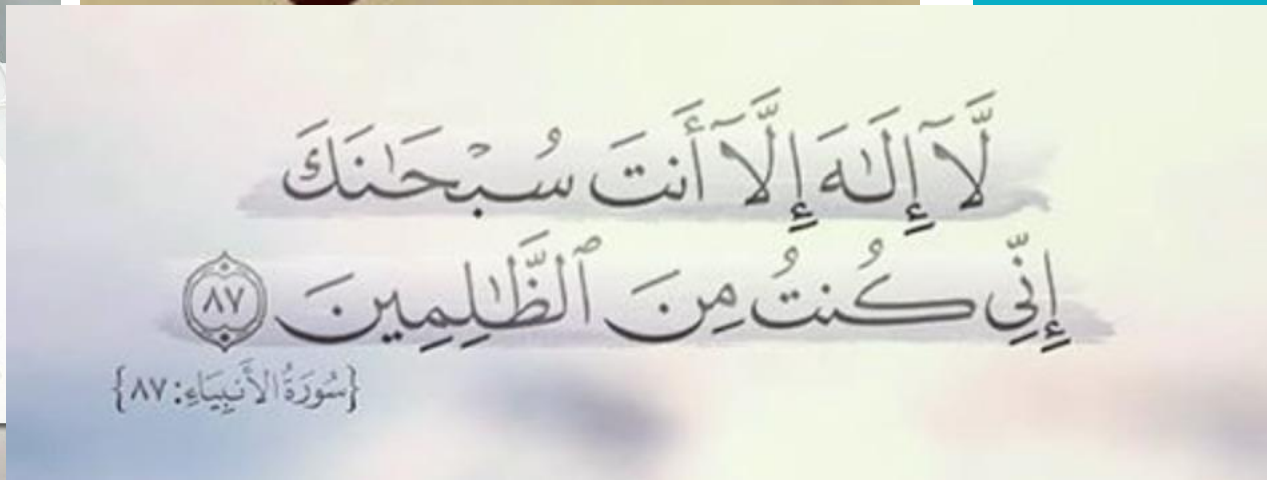 لَّآ إِلَٰهَ إِلَّآ أَنتَ سُبْحَٰنَكَ
إِنِّي كُنتُ مِنَ ٱلظَّٰلِمِينَ ٨٧
{سُورَةُ الأَنبِيَاءِ: ٨٧}